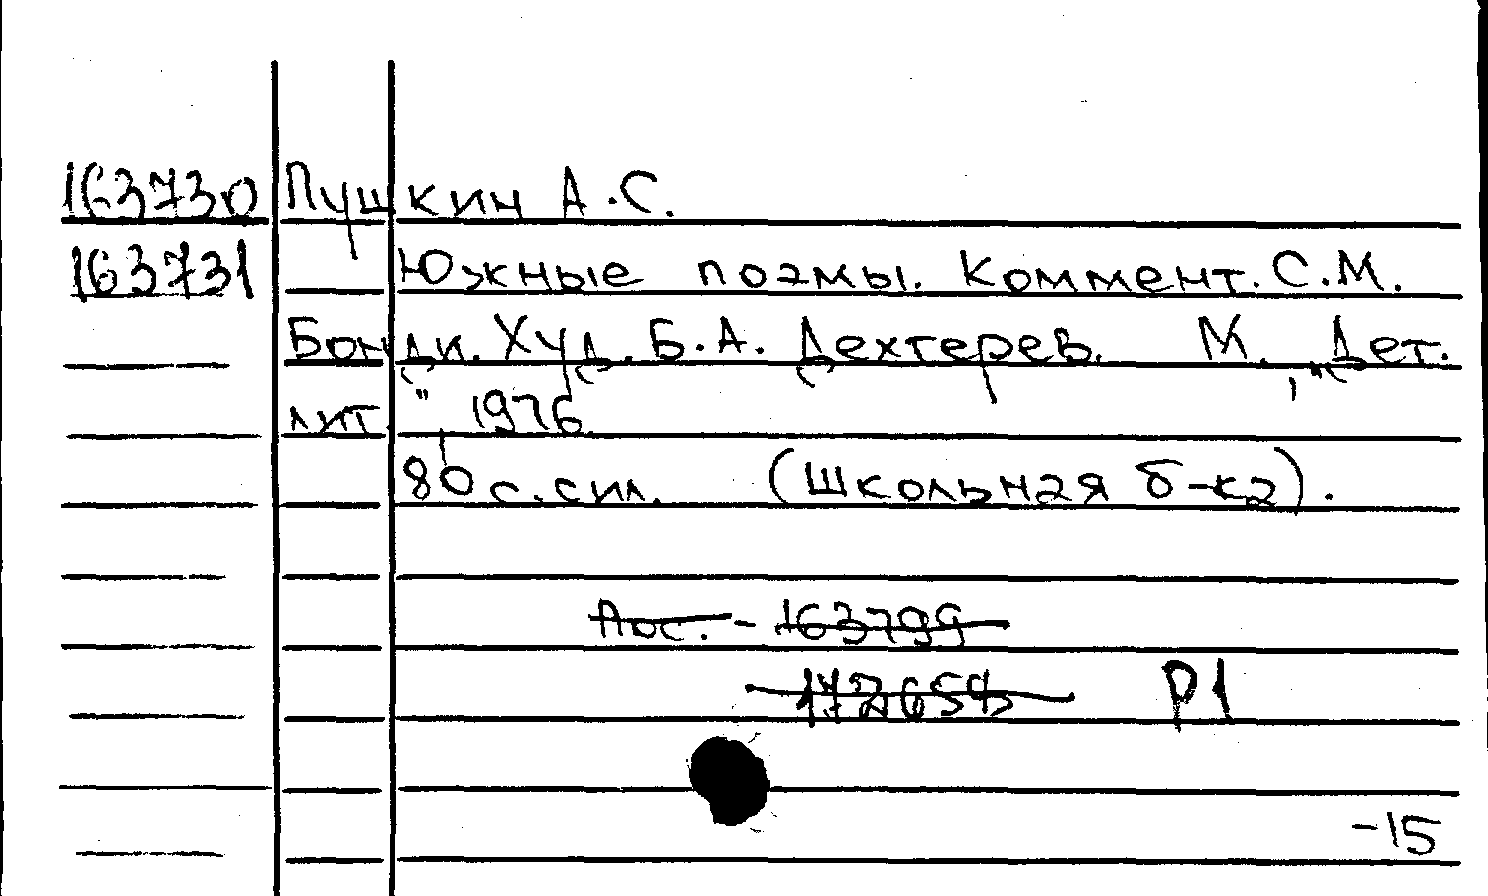 163730 Пушкин А.С.
163731 Южные поэмы. Коммент. С.М.
Бонди. Худ. Б.А. Дехтерев. М., "Дет.
лит.", 1976.
80 с. с ил. (Школьная б-ка).
Пос. - 163799
172659 Р1
-15